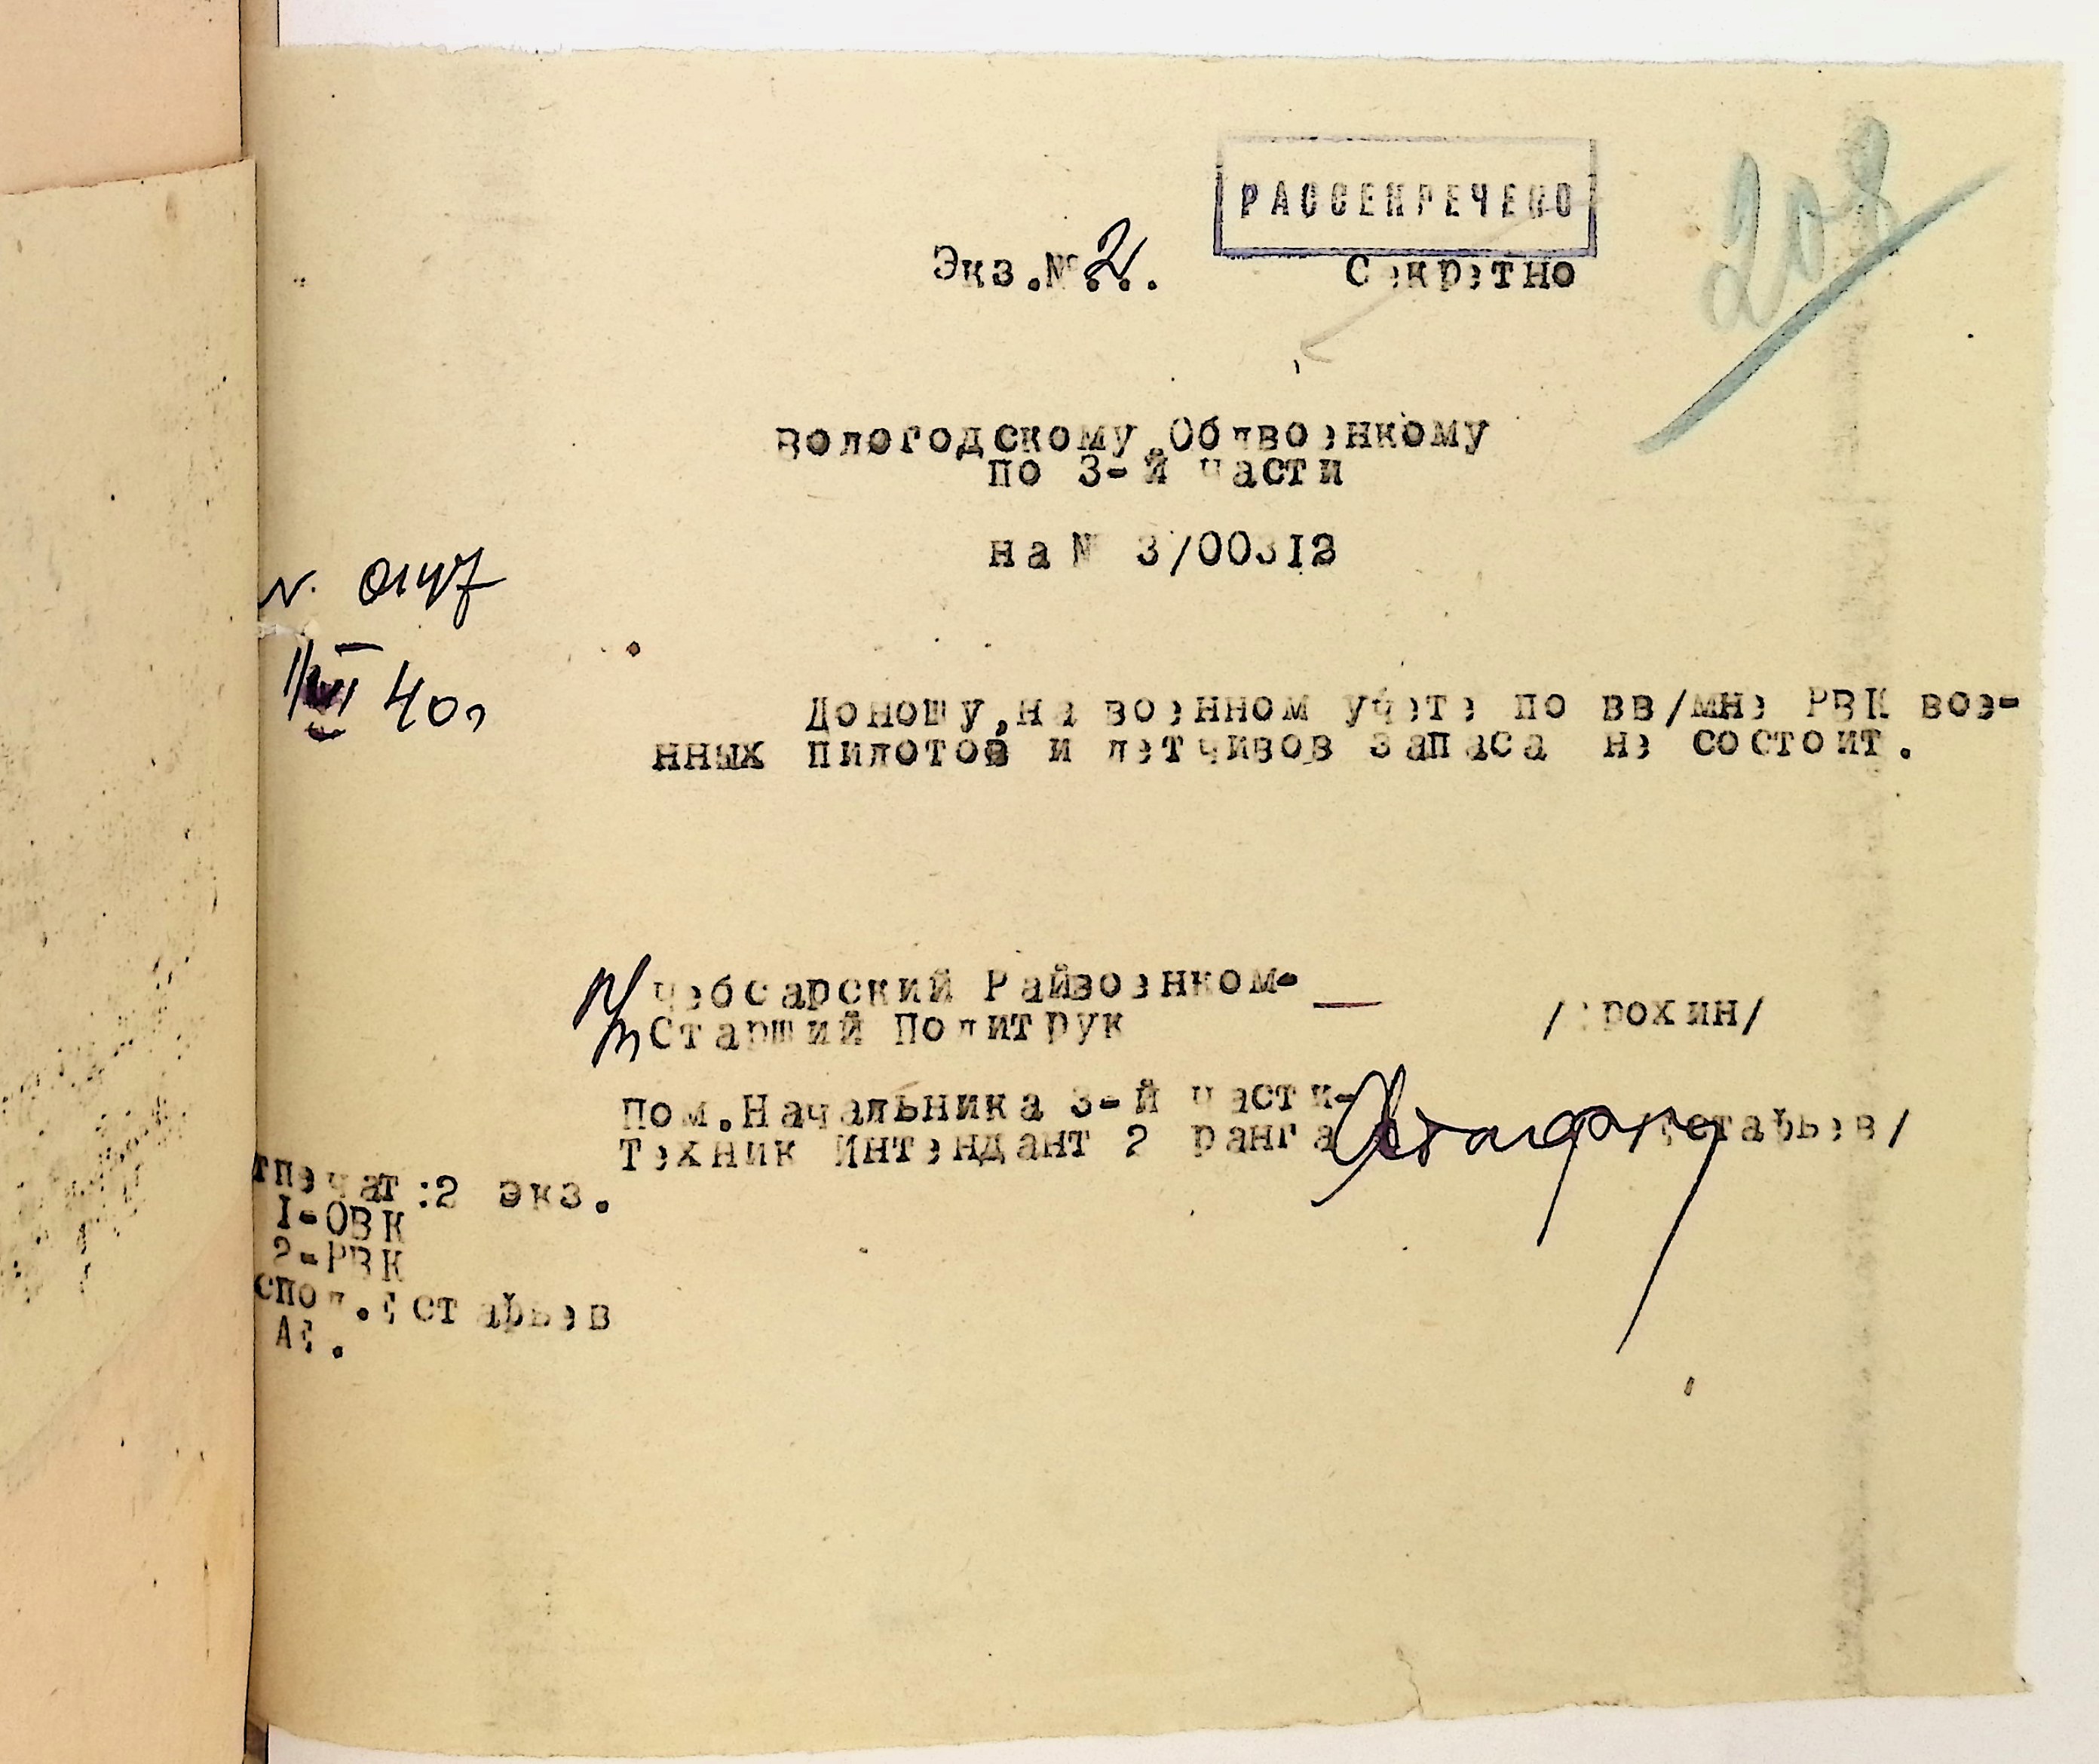 РАССЕКРЕЧЕНО
208
Экз.№ 2.
Секретно
Вологодскому Облвоенкому
по 3-й части
на № 3/00312
N. 0147
40г
Доношу,на военном учете по вв/мне РВК вое-
нных пилотов и летчивов запаса не состоит.
Чебсарский Райвоенком-
Старший Политрук
/Ерохин/
Пом.Начальника 3-й части-
Техник Интендант 2 ранга
/Естафьев/
тпечат:2 экз.
I-ОВК
2-РВК
спол.Естафьев
АЕ.